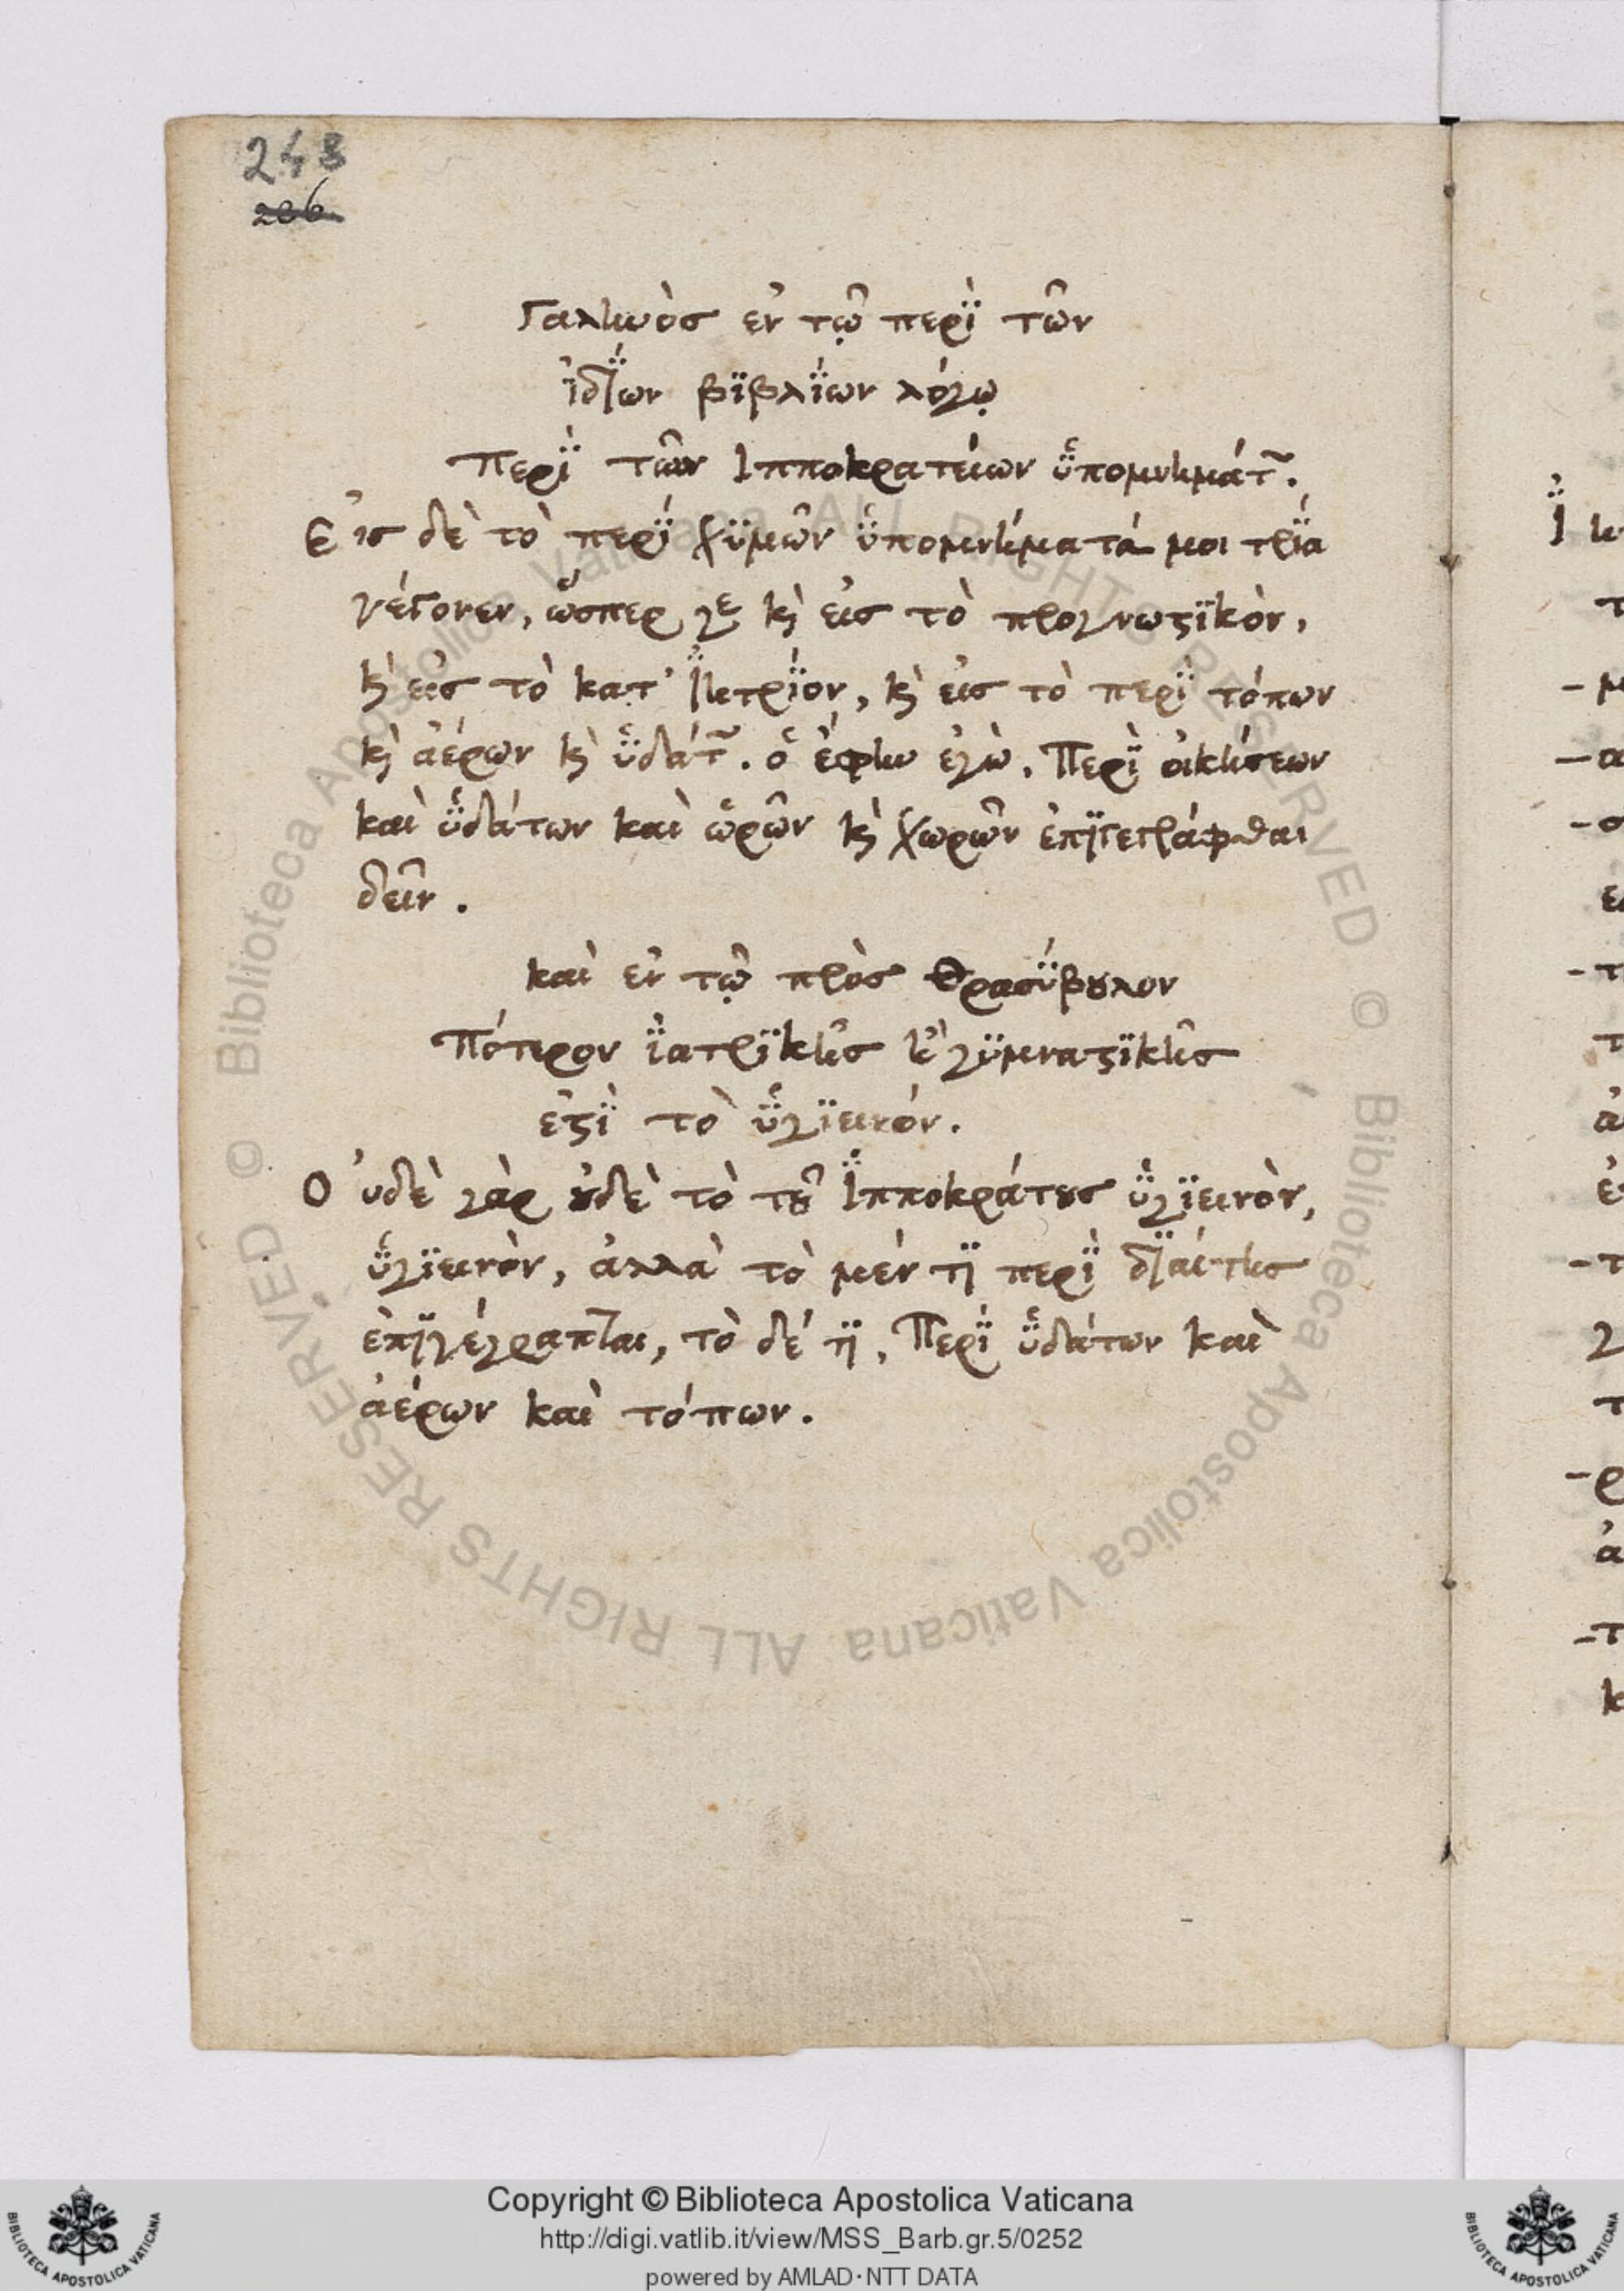 248
206
Γαληνὸσ ἐν τῷ περῒ τῶν
ἰδΐων βϊβλΐων λόγῳ
Περῒ τῶν Ιπποκρατείων ὑπομνημάτ͂.
Εἰσ δὲ τὸ περΐ χϋμῶν ὑπομνήματά μοι τρΐα
γέγονεν, ὥσπερ γε κ̀ εἰσ τὸ προγνωϛϊκὸν,
κ̀ εἰσ τὸ κατ' ἰητρΐον, κ̀ εἰσ τὸ περῒ τόπων
κ̀ ἀέρων κ̀ ὑδάτ͂. ὃ ἔφην ἐγὼ, Περῒ οἰκήσεων
καὶ ὑδάτων καὶ ὡρῶν κ̀ χωρῶν ἐπϊγεγράφθαι
δεῖν.
καὶ ἐν τῷ πρὸσ Θρασΰβȣλον
Πότερον ἰατρϊκῆσ ἢ γϋμναϛϊκῆσ
ἐϛῒ τὸ ὑγϊεινόν.
Οὐδὲ γὰρ ȣ̓δὲ τὸ τȣ͂ Ἱπποκράτȣσ ὑγϊεινὸν,
ὑγϊεινὸν, ἀλλὰ τὸ μέν τϊ περῒ δϊαίτησ
ἐπϊγέγραπται, τὸ δέ τϊ, Περΐ ὑδάτων καὶ
ἀέρων καὶ τόπων.
Copyright © Biblioteca Apostolica Vaticana
http://digi.vatlib.it/view/MSS_Barb.gr.5/0252
powered by AMLAD·NTT DATA